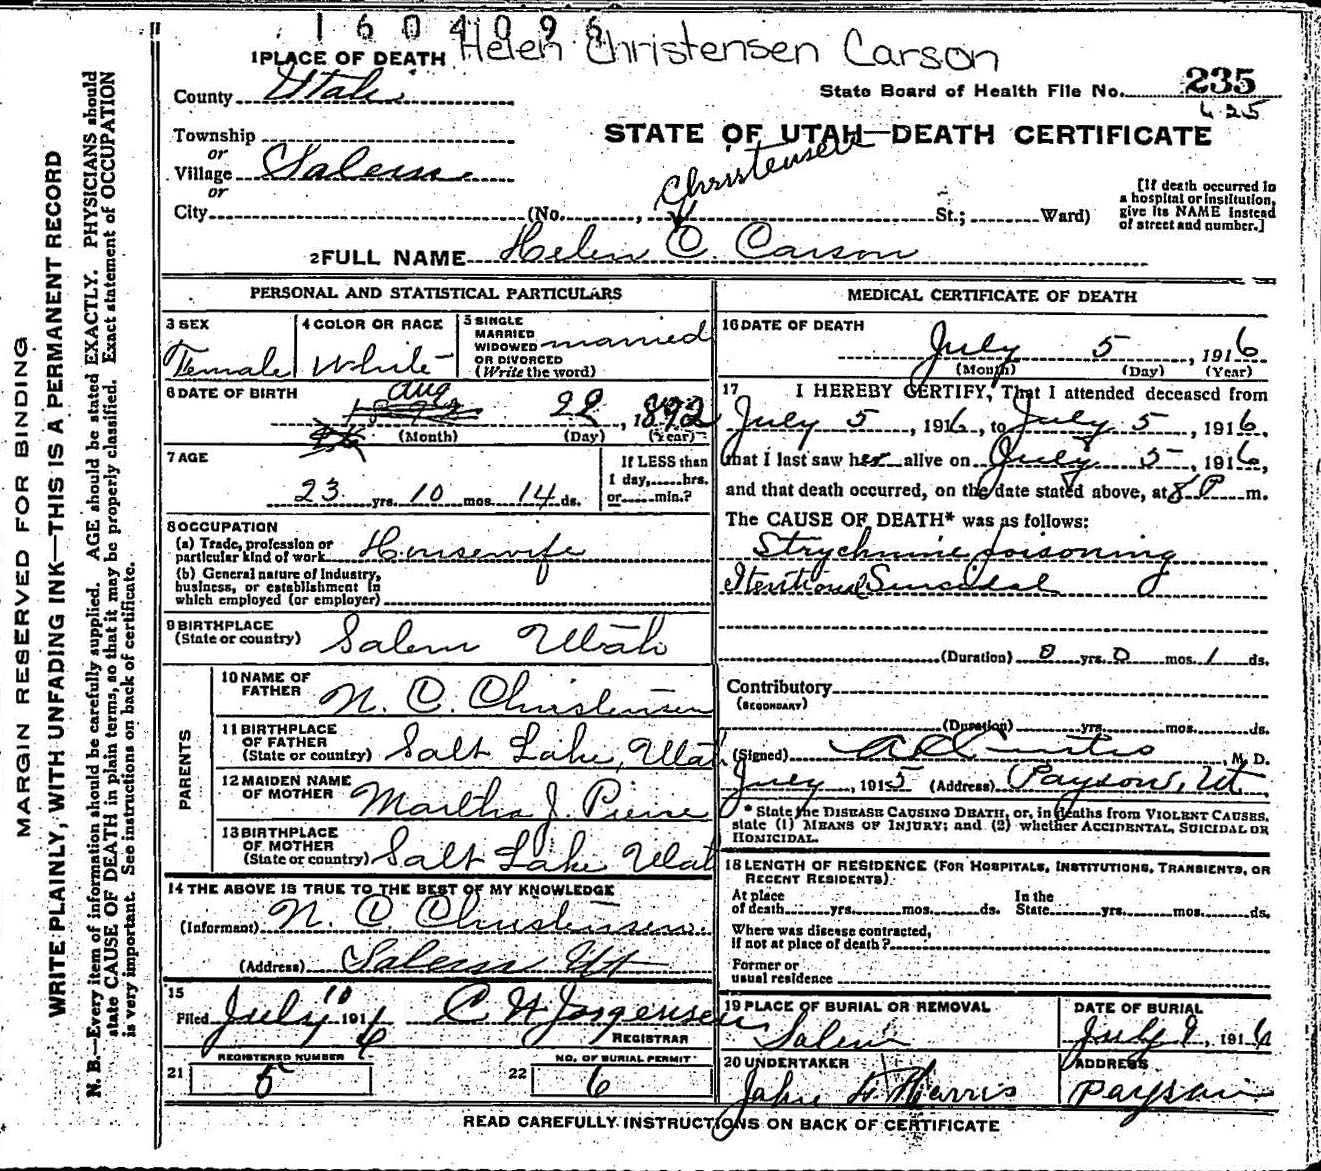 1604096
Helen Christensen Carson
1 PLACE OF DEATH
County Utah
State Board of Health File No. 235
625
Township
or
Village Salem
or
STATE OF UTAH—DEATH CERTIFICATE
Christensen
City (No. , St.; Ward)
[If death occurred in
a hospital or institution,
give its NAME instead
of street and number.]
2 FULL NAME Helen C. Carson
PERSONAL AND STATISTICAL PARTICULARS
3 SEX
Female
4 COLOR OR RACE
White
5 SINGLE
MARRIED
WIDOWED
OR DIVORCED
(Write the word)
married
6 DATE OF BIRTH
Aug 22, 1892
(Month) (Day) (Year)
7 AGE
23 yrs. 10 mos. 14 ds.
If LESS than
1 day,......hrs.
or......min.?
8 OCCUPATION
(a) Trade, profession or
particular kind of work Housewife
(b) General nature of industry,
business, or establishment in
which employed (or employer)
9 BIRTHPLACE
(State or country) Salem Utah
PARENTS
10 NAME OF
FATHER N. C. Christensen
11 BIRTHPLACE
OF FATHER
(State or country) Salt Lake, Utah
12 MAIDEN NAME
OF MOTHER Martha J. Pierce
13 BIRTHPLACE
OF MOTHER
(State or country) Salt Lake Utah
14 THE ABOVE IS TRUE TO THE BEST OF MY KNOWLEDGE
(Informant) N. C. Christensen
(Address) Salem Ut
15
Filed July 10 1916 C H Jorgensen
REGISTRAR
REGISTERED NUMBER
21 5
NO. OF BURIAL PERMIT
22 6
MEDICAL CERTIFICATE OF DEATH
16 DATE OF DEATH
July 5, 1916
(Month) (Day) (Year)
17 I HEREBY CERTIFY, That I attended deceased from
July 5, 1916, to July 5, 1916,
that I last saw her alive on July 5, 1916,
and that death occurred, on the date stated above, at 8 P m.
The CAUSE OF DEATH* was as follows:
Strychnine poisoning
Itentional Suicidal
(Duration) 0 yrs. 0 mos. 1 ds.
Contributory
(SECONDARY)
(Duration) yrs. mos. ds.
(Signed) Curtis M. D.
July, 1915 (Address) Payson, Ut
* State the DISEASE CAUSING DEATH, or, in deaths from VIOLENT CAUSES,
state (1) MEANS OF INJURY; and (2) whether ACCIDENTAL, SUICIDAL OR
HOMICIDAL.
18 LENGTH OF RESIDENCE (FOR HOSPITALS, INSTITUTIONS, TRANSIENTS, OR
RECENT RESIDENTS)
At place
of death......yrs......mos......ds.
In the
State......yrs......mos......ds.
Where was disease contracted,
if not at place of death?
Former or
usual residence
19 PLACE OF BURIAL OR REMOVAL
Salem
DATE OF BURIAL
July 9, 1916
20 UNDERTAKER
John Harris
ADDRESS
Payson
READ CAREFULLY INSTRUCTIONS ON BACK OF CERTIFICATE
MARGIN RESERVED FOR BINDING
WRITE PLAINLY, WITH UNFADING INK—THIS IS A PERMANENT RECORD
N. B.—Every item of information should be carefully supplied. AGE should be stated EXACTLY. PHYSICIANS should
state CAUSE OF DEATH in plain terms, so that it may be properly classified. Exact statement of OCCUPATION
is very important. See instructions on back of certificate.